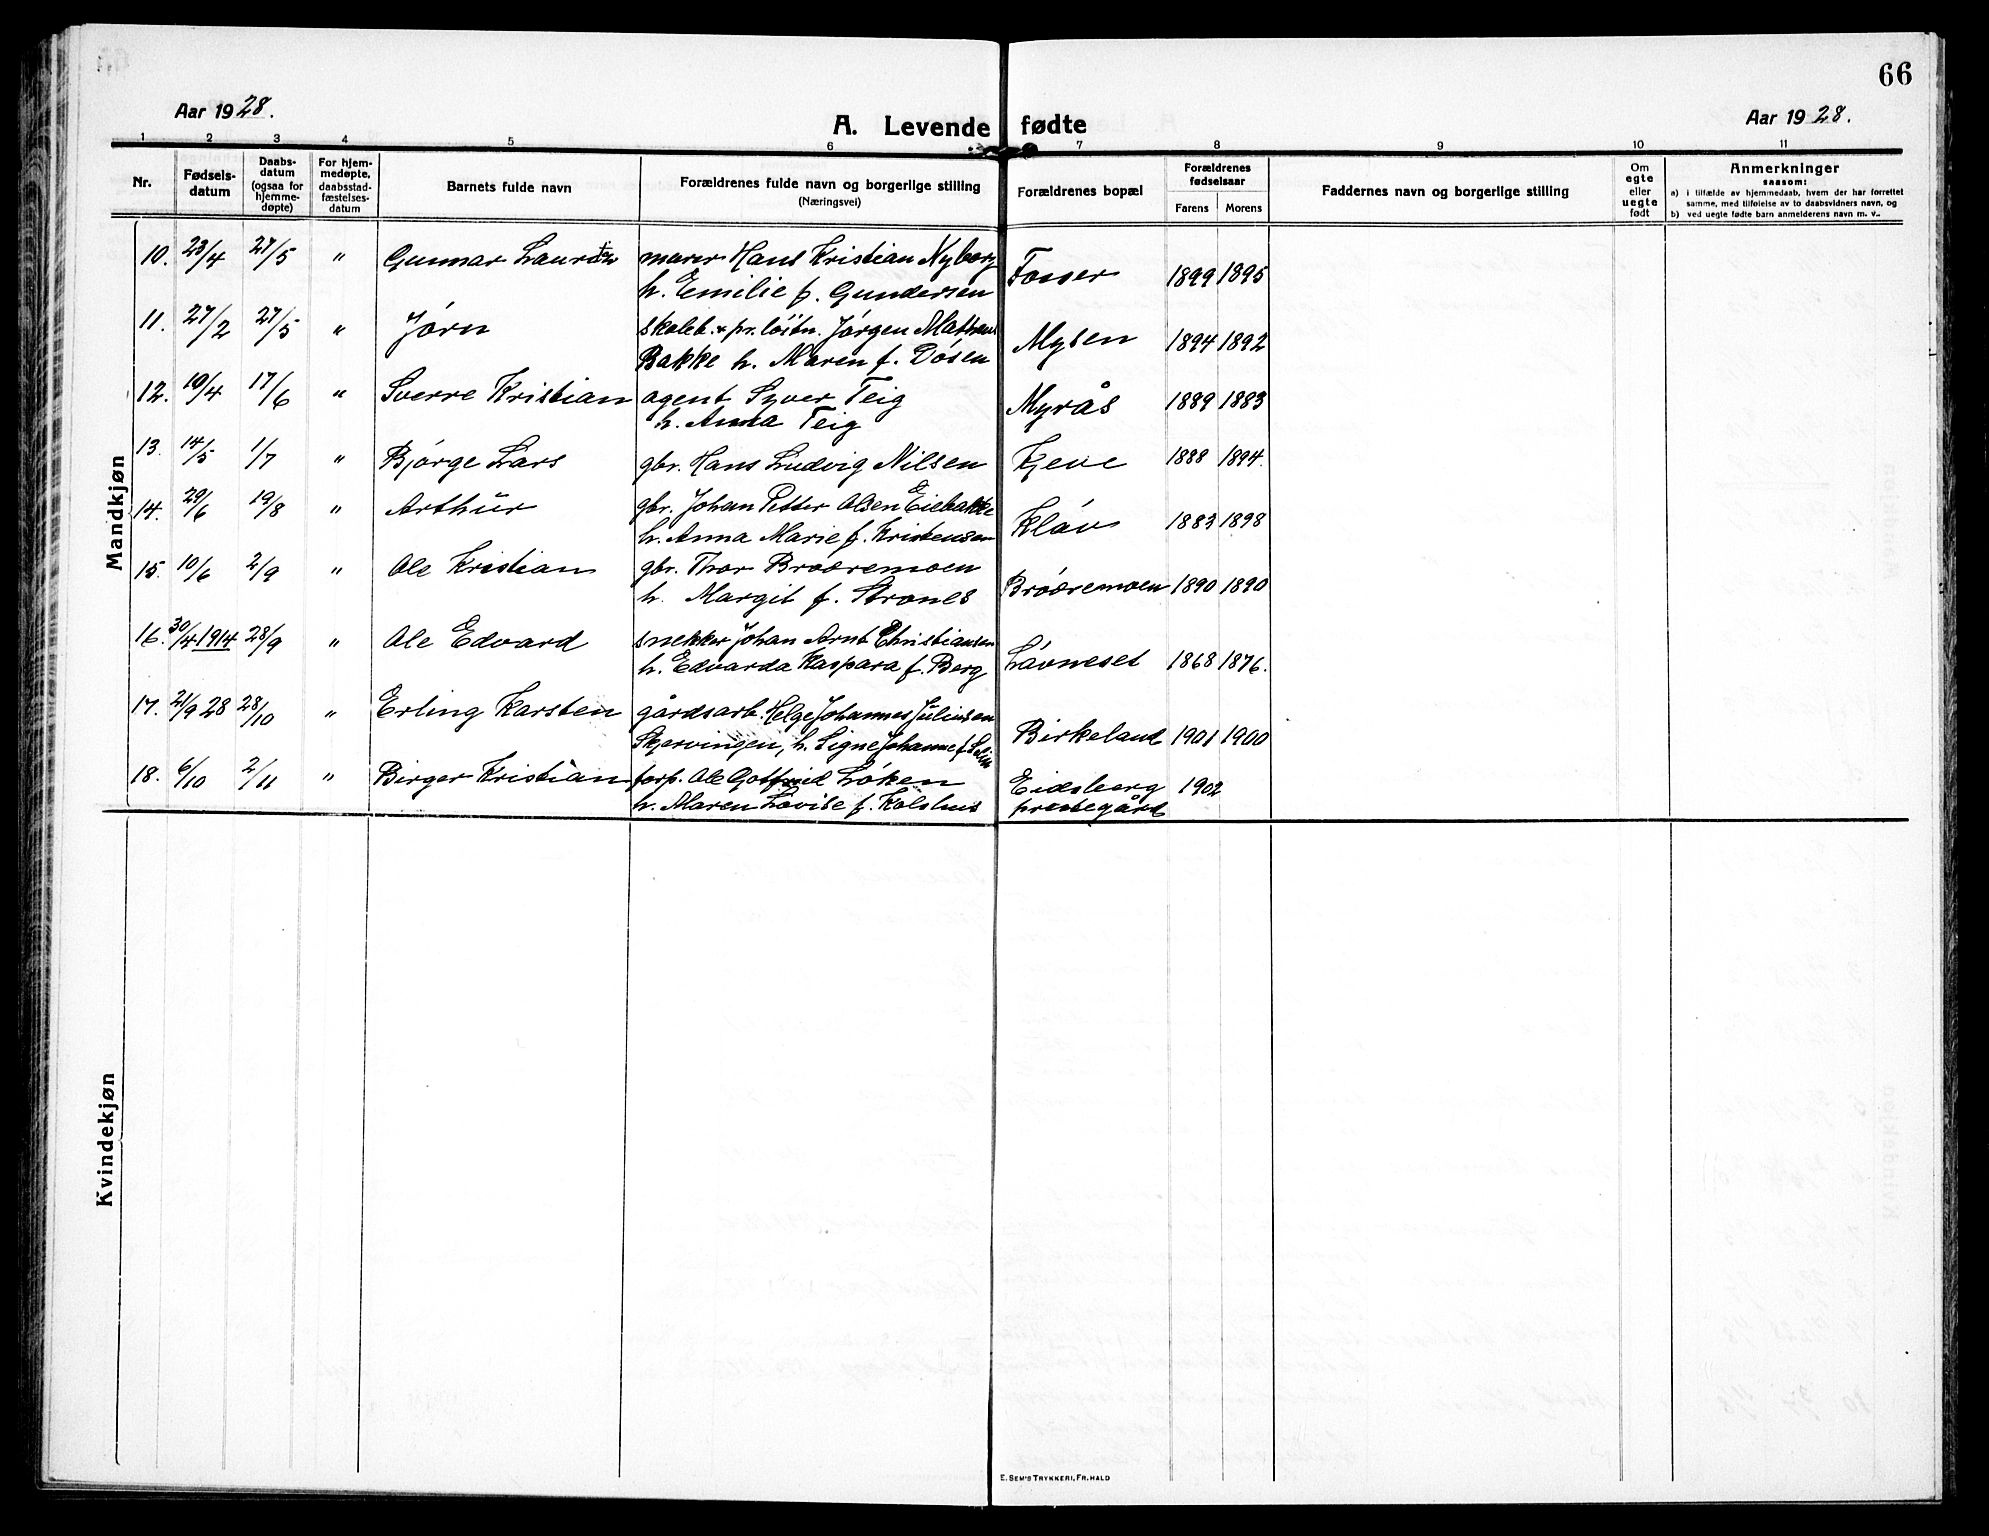 66
Aar 1928.
A. Levende fødte
Aar 1928.
1 2 3 4 5 6 7 8 9 10 11
Nr.
Fødsels-
datum
Daabs-
datum
(ogsaa for
hjemme-
døpte)
For hjem-
medøpte,
daabsstad-
fæstelses-
datum
Barnets fulde navn
Forældrenes fulde navn og borgerlige stilling
(Næringsvei)
Forældrenes bopæl
Forældrenes
fødselsaar
Farens Morens
Faddernes navn og borgerlige stilling
Om
egte
eller
uegte
født
Anmerkninger
saasom:
a) i tilfælde av hjemmedaab, hvem der har forrettet
samme, med tilføielse av to daabsvidners navn, og
b) ved uegte fødte barn anmelderens navn m. v.
Mandkjøn
10. 23/4 27/5 " Gunnar murer Hans Kristian Nyborg
h. Emilie f. Gundersen Fosser 1899 1895
11. 27/2 27/5 " Jørn skoleb. + pr. løitn. Jørgen
Bakke h. Maren f. Døsen Mysen 1894 1892
12. 19/4 17/6 " Sverre Kristian agent Syver Teig
h. Anna Teig Myrås 1889 1883
13. 14/5 1/7 " Bjørge Lars gbr. Hans Ludvig Nilsen Kjeve 1888 1894.
14. 29/6 19/8 " Arthur gbr. Johan Petter Olsen Eiebakke
h. Anna Marie f. Kristensen Kløv 1883 1898
15. 10/6 2/9 " Ole Kristian gbr. Thor Broæremoen
h. Margit f. Strønes Brøæremoen 1890 1890
16. 30/4 1914 28/9 " Ole Edvard snekker Johan Arnt Christiansen
h. Edvarda Kaspara f. Berg Løvneset 1868 1876.
17. 21/9 28 28/10 " Erling Karsten gårdsarb. Helge Johannes Juliusen
Skjervingen, h. Signe Johanne f. Birkeland 1901 1900
18. 6/10 2/11 " Birger Kristian forp. Ole Gotfried Løken
h. Maren Lovise f. Kolshus Eidsberg
prestegård 1902
Kvindekjøn
E. SEM'S TRYKKERI, FR.HALD